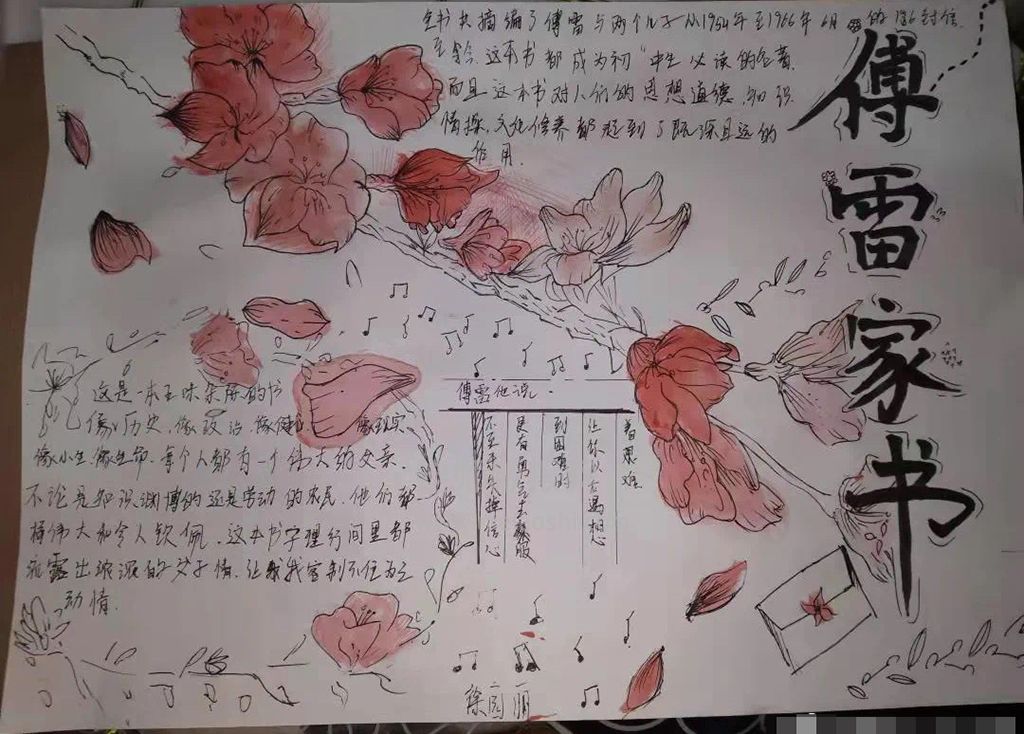 傅雷家书
全书共摘编了傅雷与两个儿子从1954年至1966年6月的186封信
至今,这本书都成为初中生必读的名著.
而且这本书对人们的思想道德、知识
情操、文化修养都起到了既深且远的
作用.
这是一本五味杂陈的书
像历史.像政治.像
像小生.像生命.每个人都有一个伟大的父亲.
不论是知识渊博的还是劳动的农民.他们都
伟大和令人钦佩.这本书字里行间里都
流露出浓浓的父子情.让我
动情.
傅雷他说.
着艰难
让你以右遇相心
到困难时
更有勇气去克服
不至于失掉信心
徐园丽